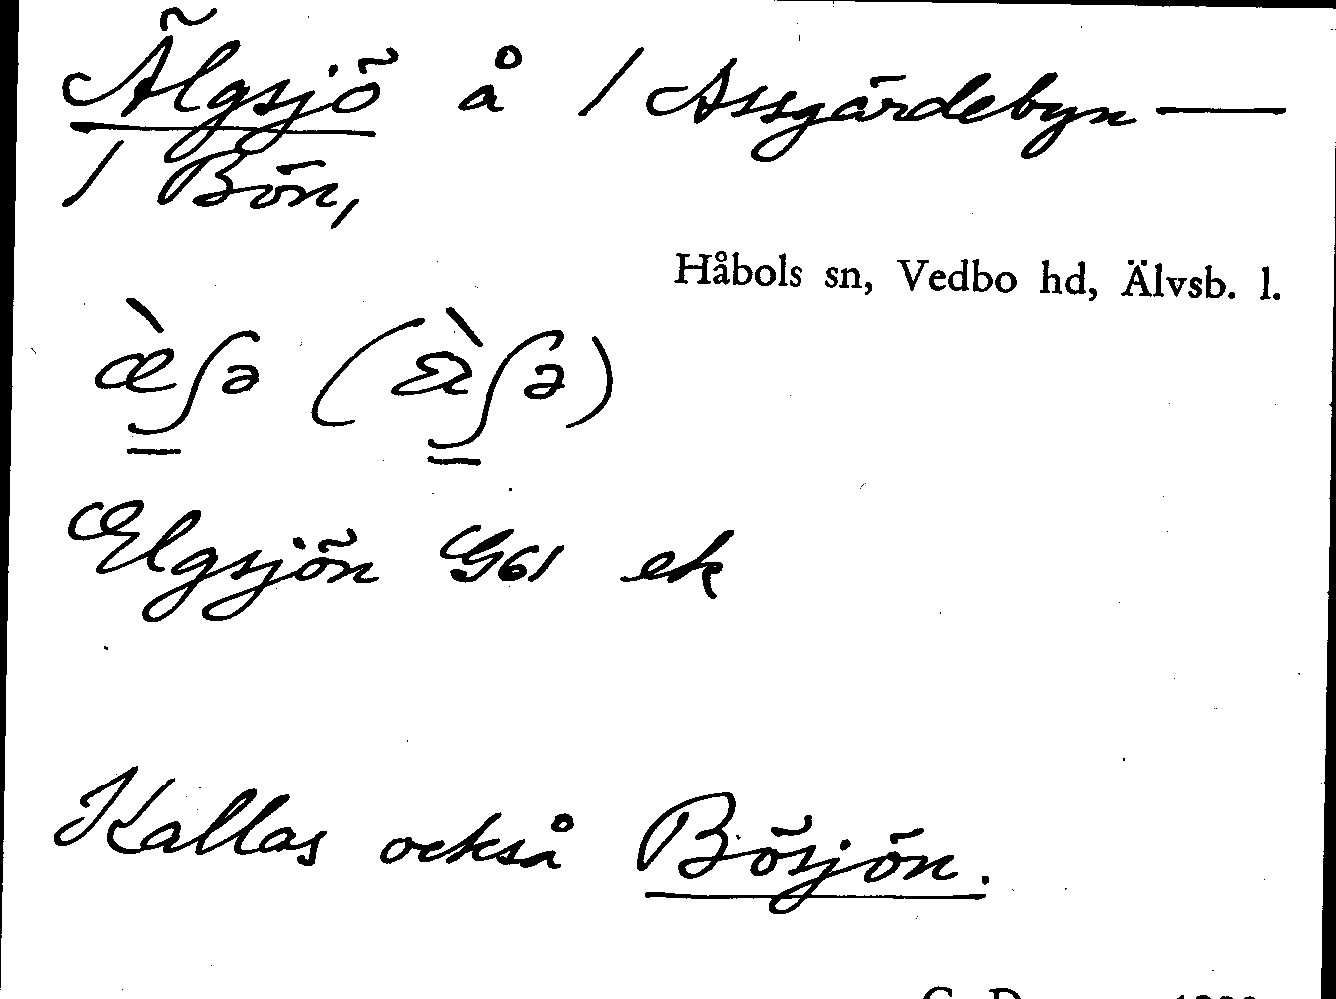 Älgsjö å / Assgärdebyn —
/ Bön,
Håbols sn, Vedbo hd, Älvsb. l.
Elgsjön G61 ek
Kallas också Bösjön.